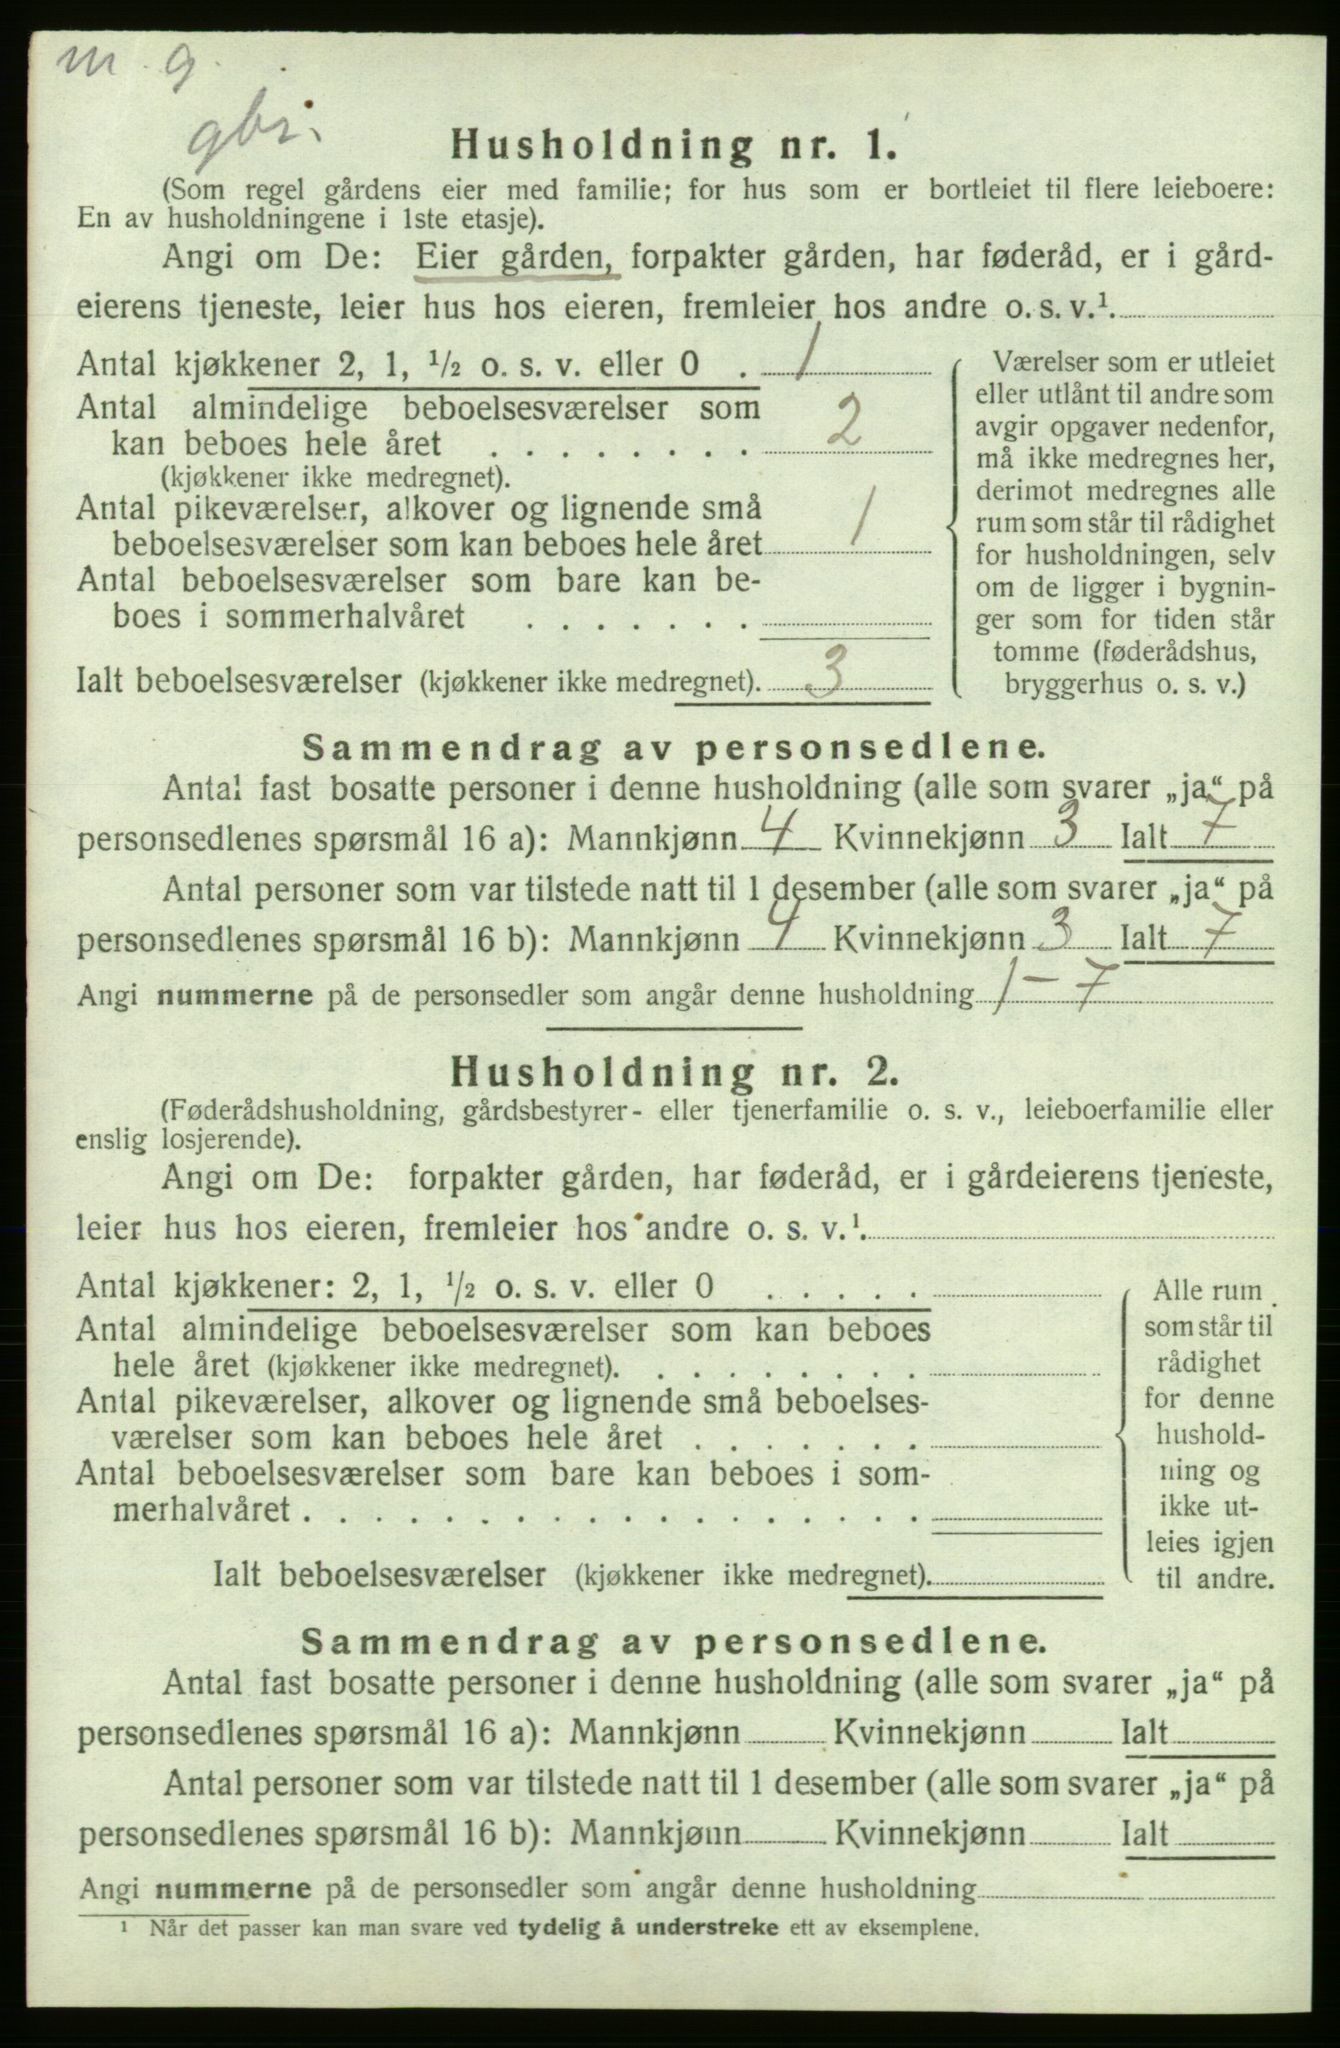 m. g.
gbr.
Husholdning nr. 1.
(Som regel gårdens eier med familie; for hus som er bortleiet til flere leieboere:
En av husholdningene i 1ste etasje).
Angi om De: Eier gården, forpakter gården, har føderåd, er i gård-
eierens tjeneste, leier hus hos eieren, fremleier hos andre o. s. v.¹.
Antal kjøkkener 2, 1, ½ o. s. v. eller 0 . 1
Antal almindelige beboelsesværelser som
kan beboes hele året . . . . . . . . 2
(kjøkkener ikke medregnet).
Antal pikeværelser, alkover og lignende små
beboelsesværelser som kan beboes hele året 1
Antal beboelsesværelser som bare kan be-
boes i sommerhalvåret . . . . . . .
Ialt beboelsesværelser (kjøkkener ikke medregnet). 3
Værelser som er utleiet
eller utlånt til andre som
avgir opgaver nedenfor,
må ikke medregnes her,
derimot medregnes alle
rum som står til rådighet
for husholdningen, selv
om de ligger i bygnin-
ger som for tiden står
tomme (føderådshus,
bryggerhus o. s. v.)
Sammendrag av personsedlene.
Antal fast bosatte personer i denne husholdning (alle som svarer „ja“ på
personsedlenes spørsmål 16 a): Mannkjønn 4 Kvinnekjønn 3 Ialt 7
Antal personer som var tilstede natt til 1 desember (alle som svarer „ja“ på
personsedlenes spørsmål 16 b): Mannkjønn 4 Kvinnekjønn 3 Ialt 7
Angi nummerne på de personsedler som angår denne husholdning 1 – 7
Husholdning nr. 2.
(Føderådshusholdning, gårdsbestyrer- eller tjenerfamilie o. s. v., leieboerfamilie eller
enslig losjerende).
Angi om De: forpakter gården, har føderåd, er i gårdeierens tjeneste,
leier hus hos eieren, fremleier hos andre o. s. v.¹.
Antal kjøkkener: 2, 1, ½ o. s. v. eller 0 . . . . .
Antal almindelige beboelsesværelser som kan beboes
hele året (kjøkkener ikke medregnet). . . . . . . . .
Antal pikeværelser, alkover og lignende små beboelses-
værelser som kan beboes hele året . . . . . . .
Antal beboelsesværelser som bare kan beboes i som-
merhalvåret . . . . . . . . . . . . . . . . . .
Ialt beboelsesværelser (kjøkkener ikke medregnet).
Alle rum
som står til
rådighet
for denne
hushold-
ning og
ikke ut-
leies igjen
til andre.
Sammendrag av personsedlene.
Antal fast bosatte personer i denne husholdning (alle som svarer „ja“ på
personsedlenes spørsmål 16 a): Mannkjønn Kvinnekjønn Ialt
Antal personer som var tilstede natt til 1 desember (alle som svarer „ja“ på
personsedlenes spørsmål 16 b): Mannkjønn Kvinnekjønn Ialt
Angi nummerne på de personsedler som angår denne husholdning
¹ Når det passer kan man svare ved tydelig å understreke ett av eksemplene.